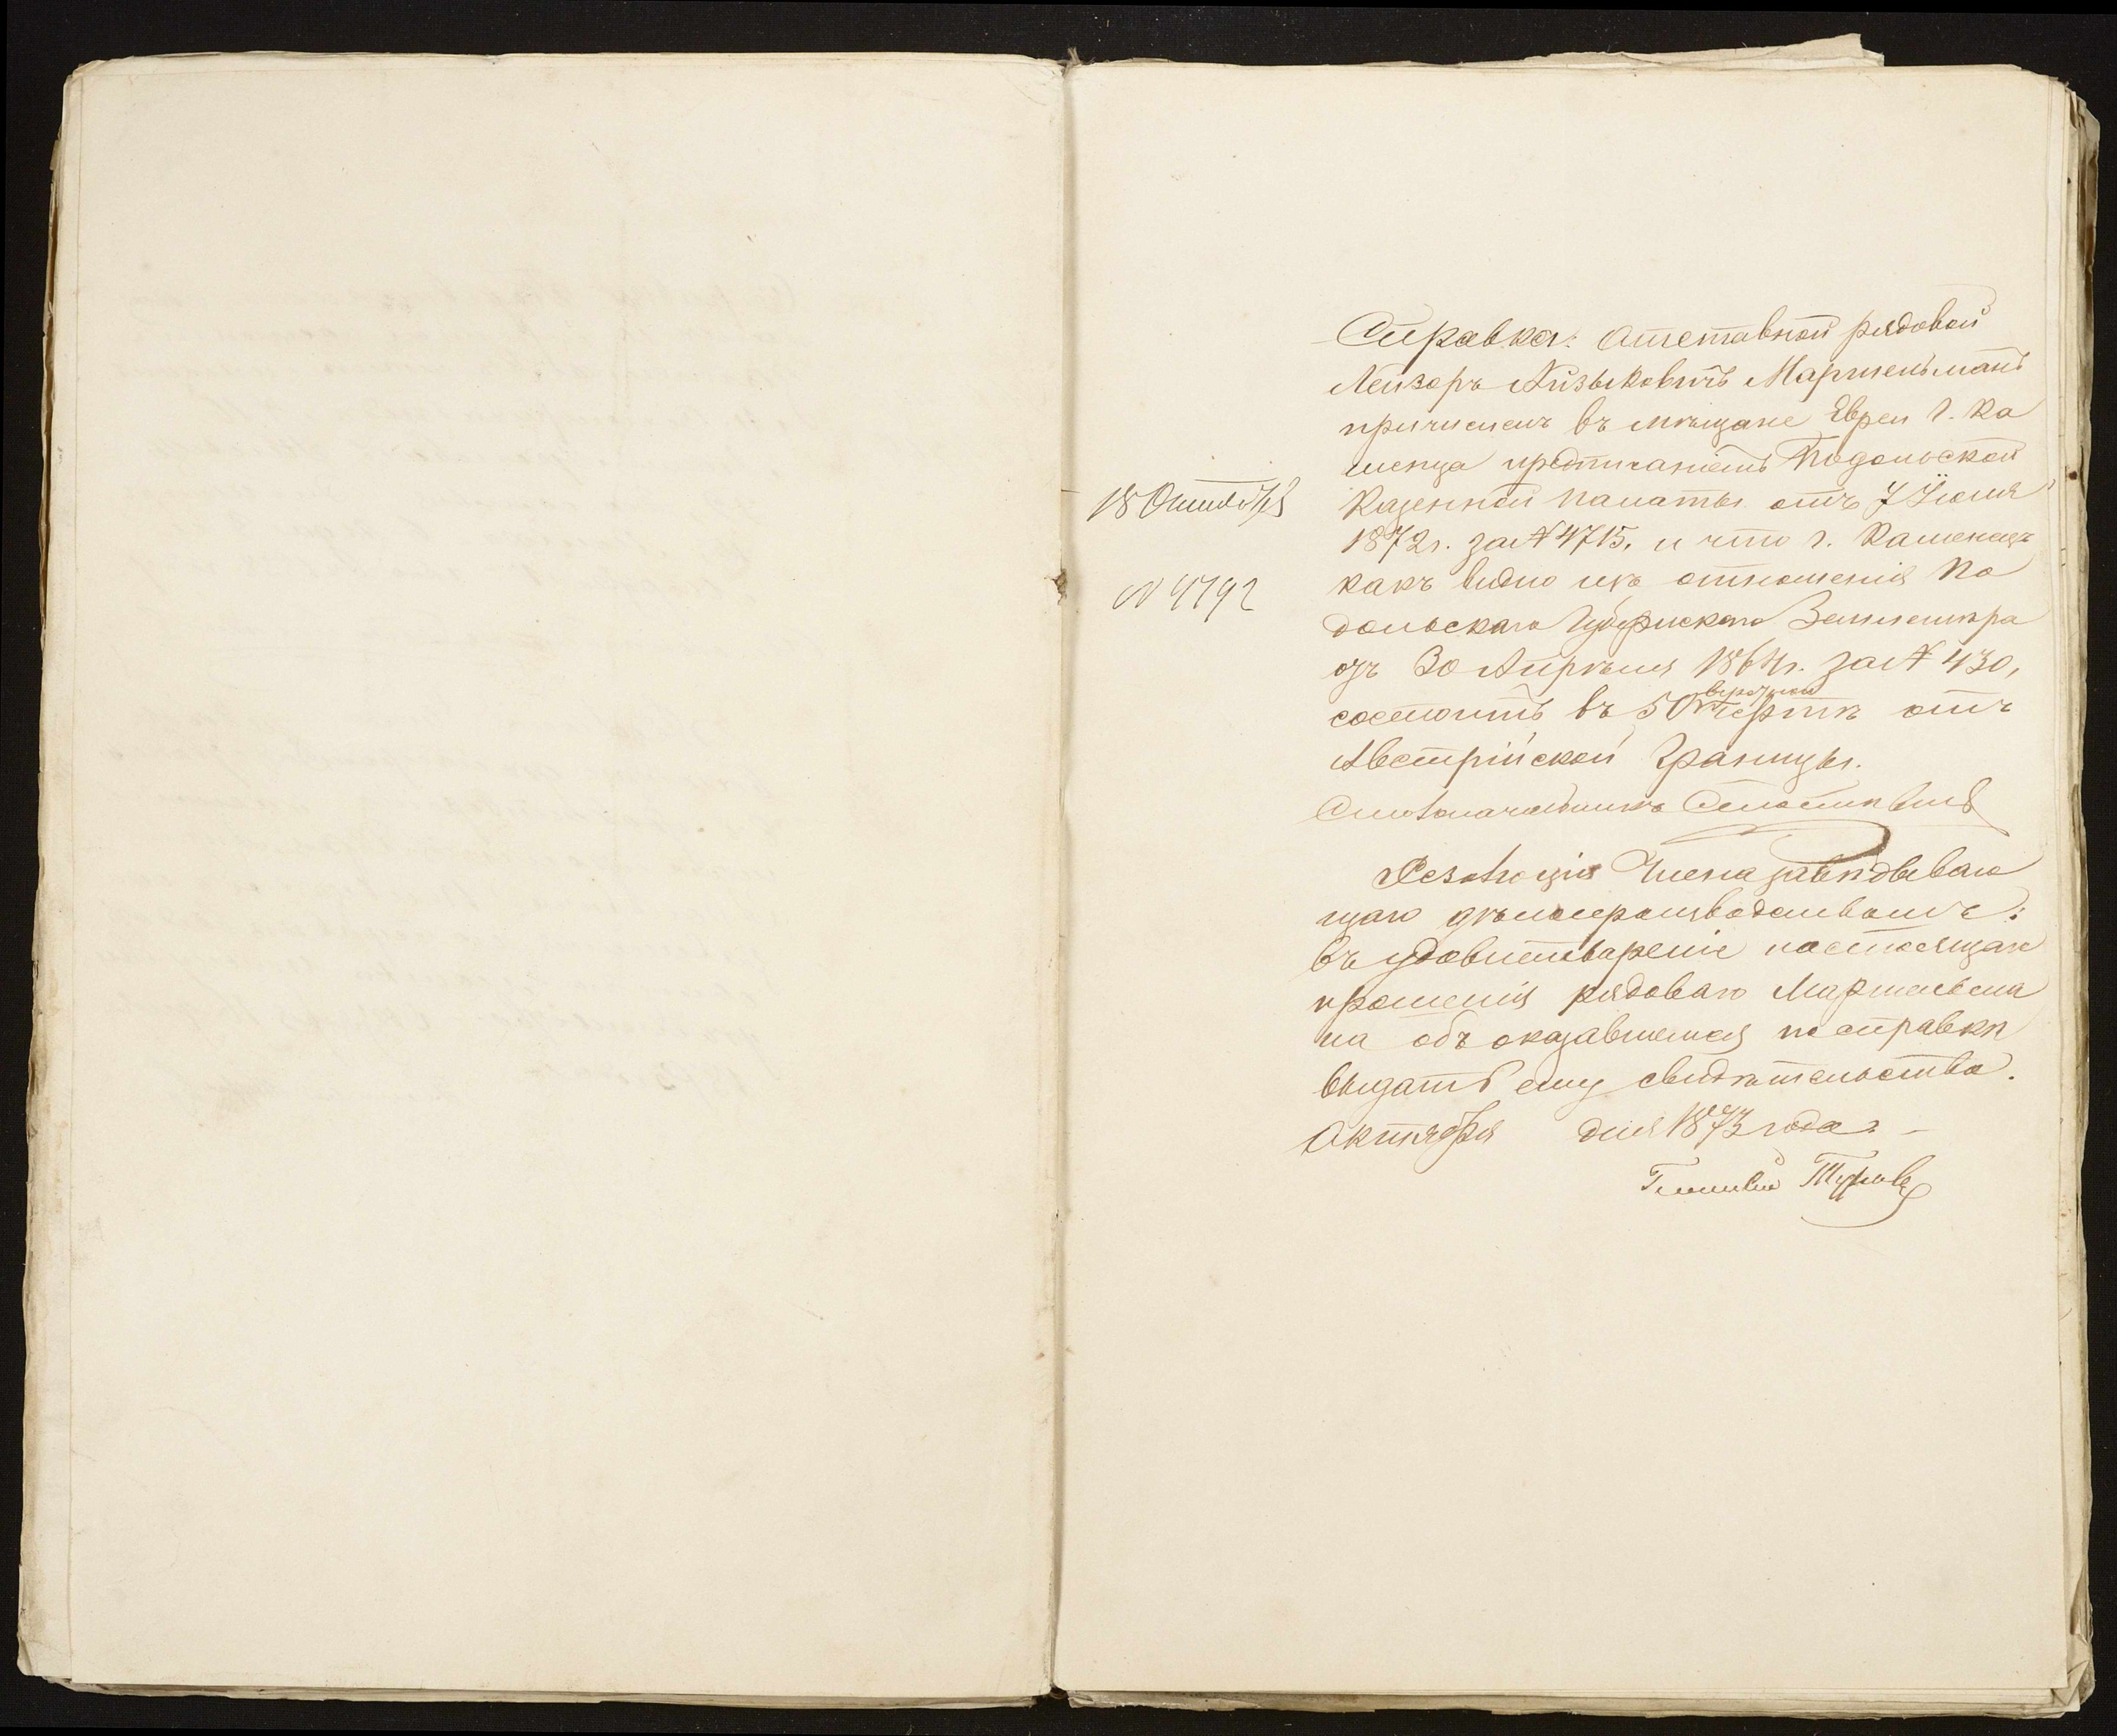 Справка: Отставной рядовой
Лейзоръ Айзыковичъ Мартельманъ
причисленъ въ мѣщане Евреи г. Ка
менца предписаніемъ Подольской
18 Октября
Казенной Палаты отъ 7 Іюля
1872 г. за № 4715, и что г. Каменецъ
№ 4792
какъ видно изъ отношенія По
дольскаго Губернскаго Землемѣра
отъ 30 Апрѣля 1864 г. за № 430,
верстной
состоитъ въ 50 чертѣ отъ
Австрійской Границы.
Столоначальникъ
Резолюція Члена завѣдываю
щаго дѣлопроизводствомъ:
Въ удовлетвореніе настоящаго
прошенія рядоваго Мартельма
на объ оказавшемся по справкѣ
выдать ему свидѣтельство.
Октября дня 1873 года.